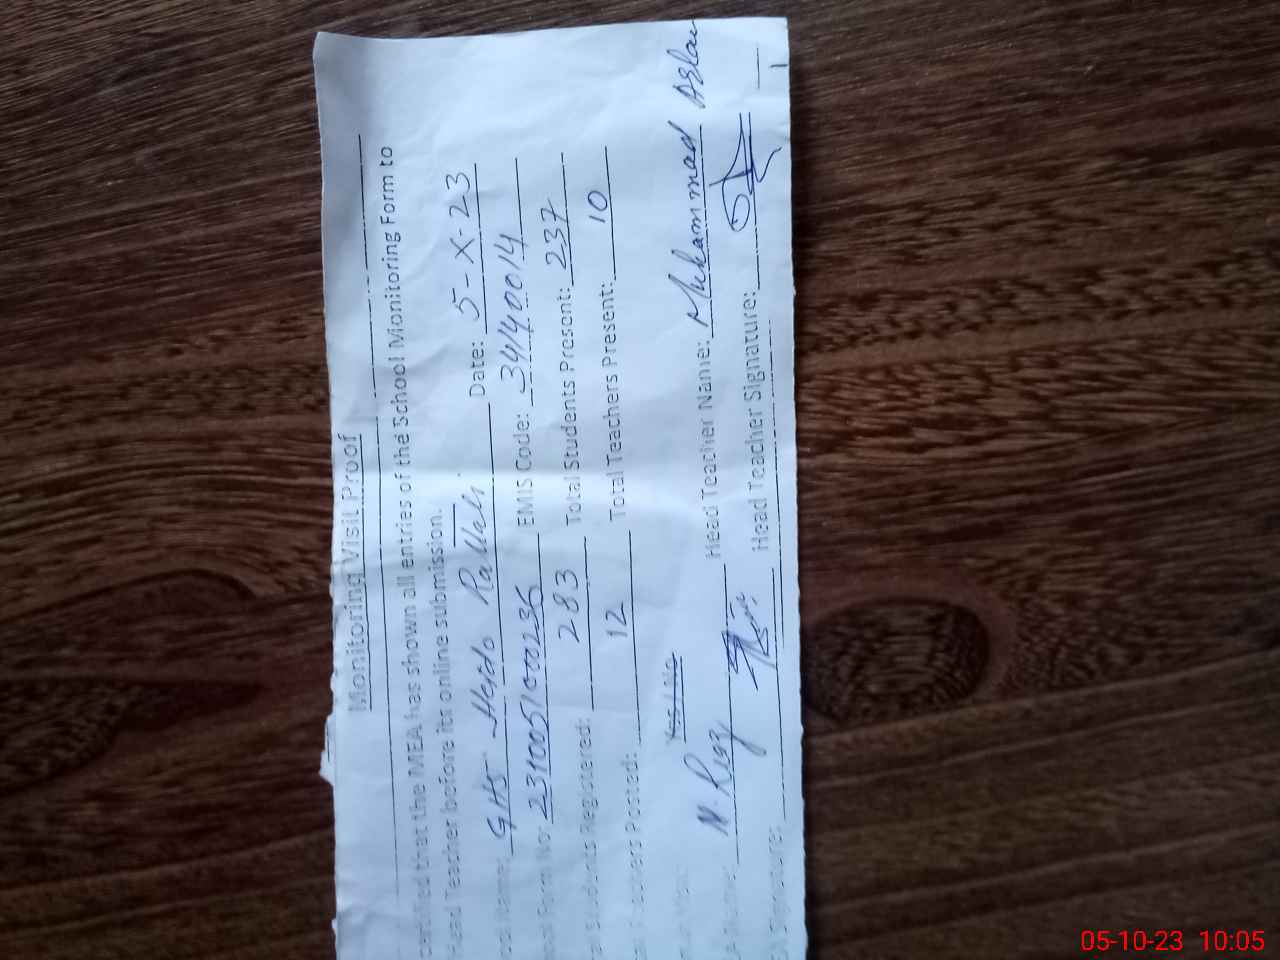 Monitoring Visit Proof
that the MEA has shown all entries of the School Monitoring Form to
Head Teacher before its online submission.
Name: GHS Date: 5-X-23
Form No: EMIS Code: 34140014
Students Registered: 283 Total Students Present: 237
Teachers Posted: 12 Total Teachers Present: 10
Yes / No
Name: M. Riaz Head Teacher Name: Muhammad Aslam
Signature: Head Teacher Signature:
1
05-10-23 10:05